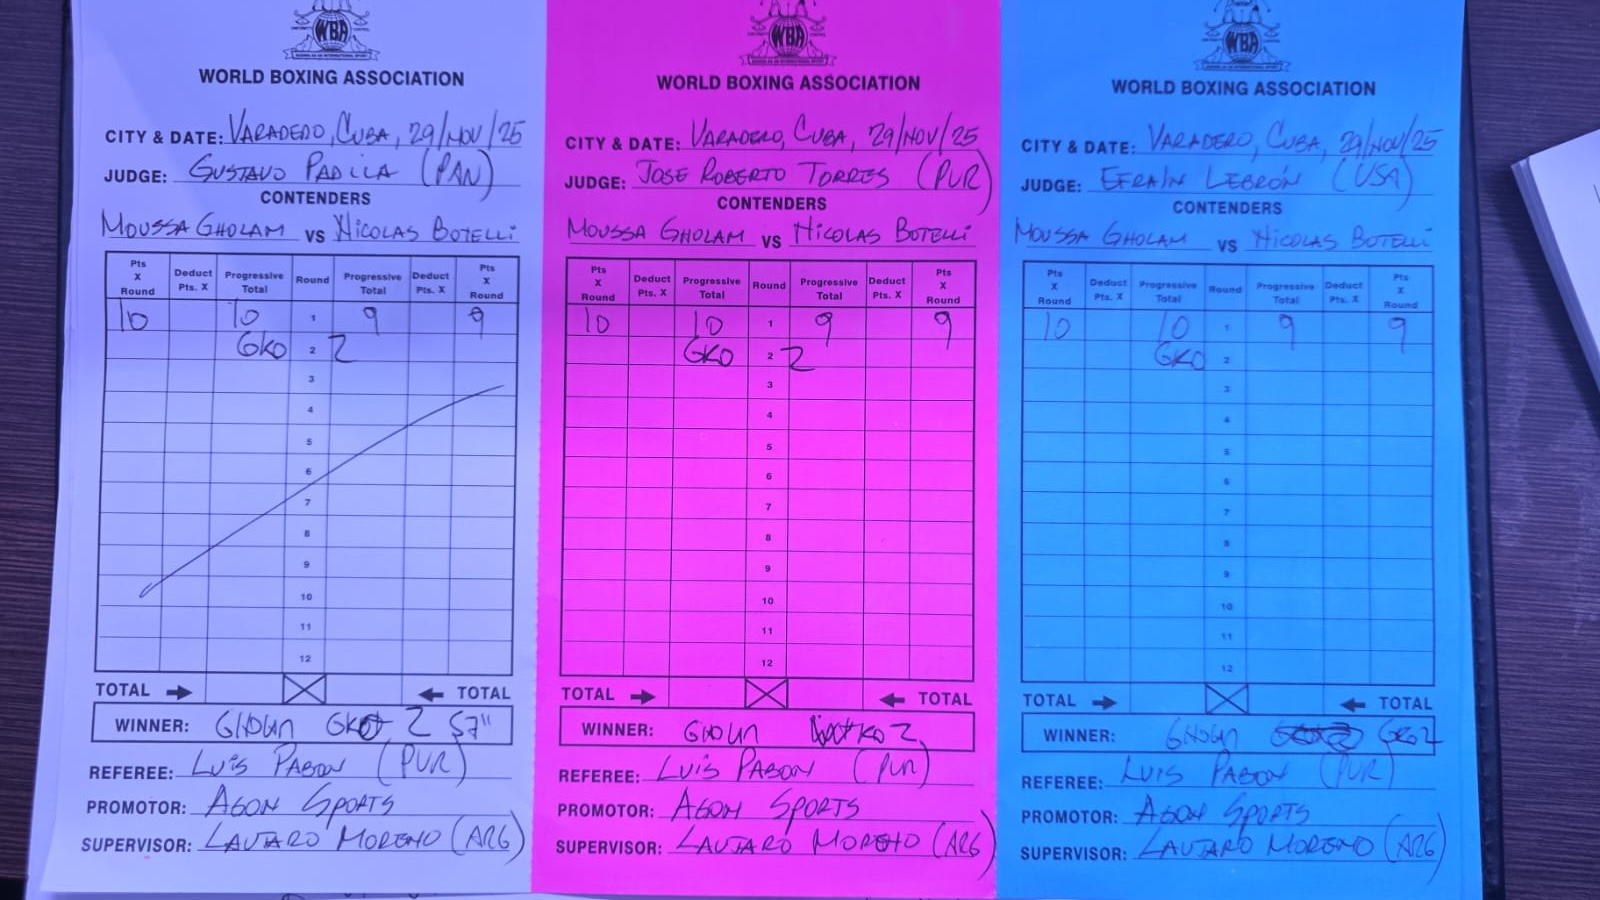 WBA
WORLD BOXING ASSOCIATION
CITY & DATE: VARADERO, CUBA, 29/NOV/25
JUDGE: GUSTAVO PADILLA (PAN)
CONTENDERS
MOUSSA GHOLAM VS NICOLAS BOTELLI
Pts X Round Deduct Pts. X Progressive Total Round Progressive Total Deduct Pts. X Pts X Round
10 10 1 9 9
GKO 2 2
3
4
5
6
7
8
9
10
11
12
TOTAL TOTAL
WINNER: 2 57"
REFEREE: LUIS PABON (PUR)
PROMOTOR: AGON SPORTS
SUPERVISOR: LAUTARO MORENO (ARG)
WBA
WORLD BOXING ASSOCIATION
CITY & DATE: VARADERO, CUBA, 29/NOV/25
JUDGE: JOSE ROBERTO TORRES (PUR)
CONTENDERS
MOUSSA GHOLAM VS NICOLAS BOTELLI
Pts X Round Deduct Pts. X Progressive Total Round Progressive Total Deduct Pts. X Pts X Round
10 10 1 9 9
GKO 2 2
3
4
5
6
7
8
9
10
11
12
TOTAL TOTAL
WINNER: KO 2
REFEREE: LUIS PABON (PUR)
PROMOTOR: AGON SPORTS
SUPERVISOR: LAUTARO MORENO (ARG)
WBA
WORLD BOXING ASSOCIATION
CITY & DATE: VARADERO, CUBA, 29/NOV/25
JUDGE: EFRAIN LEBRÓN (USA)
CONTENDERS
MOUSSA GHOLAM VS NICOLAS BOTELLI
Pts X Round Deduct Pts. X Progressive Total Round Progressive Total Deduct Pts. X Pts X Round
10 10 1 9 9
GKO 2
3
4
5
6
7
8
9
10
11
12
TOTAL TOTAL
WINNER: GKO 2
REFEREE: LUIS PABON (PUR)
PROMOTOR: AGON SPORTS
SUPERVISOR: LAUTARO MORENO (ARG)